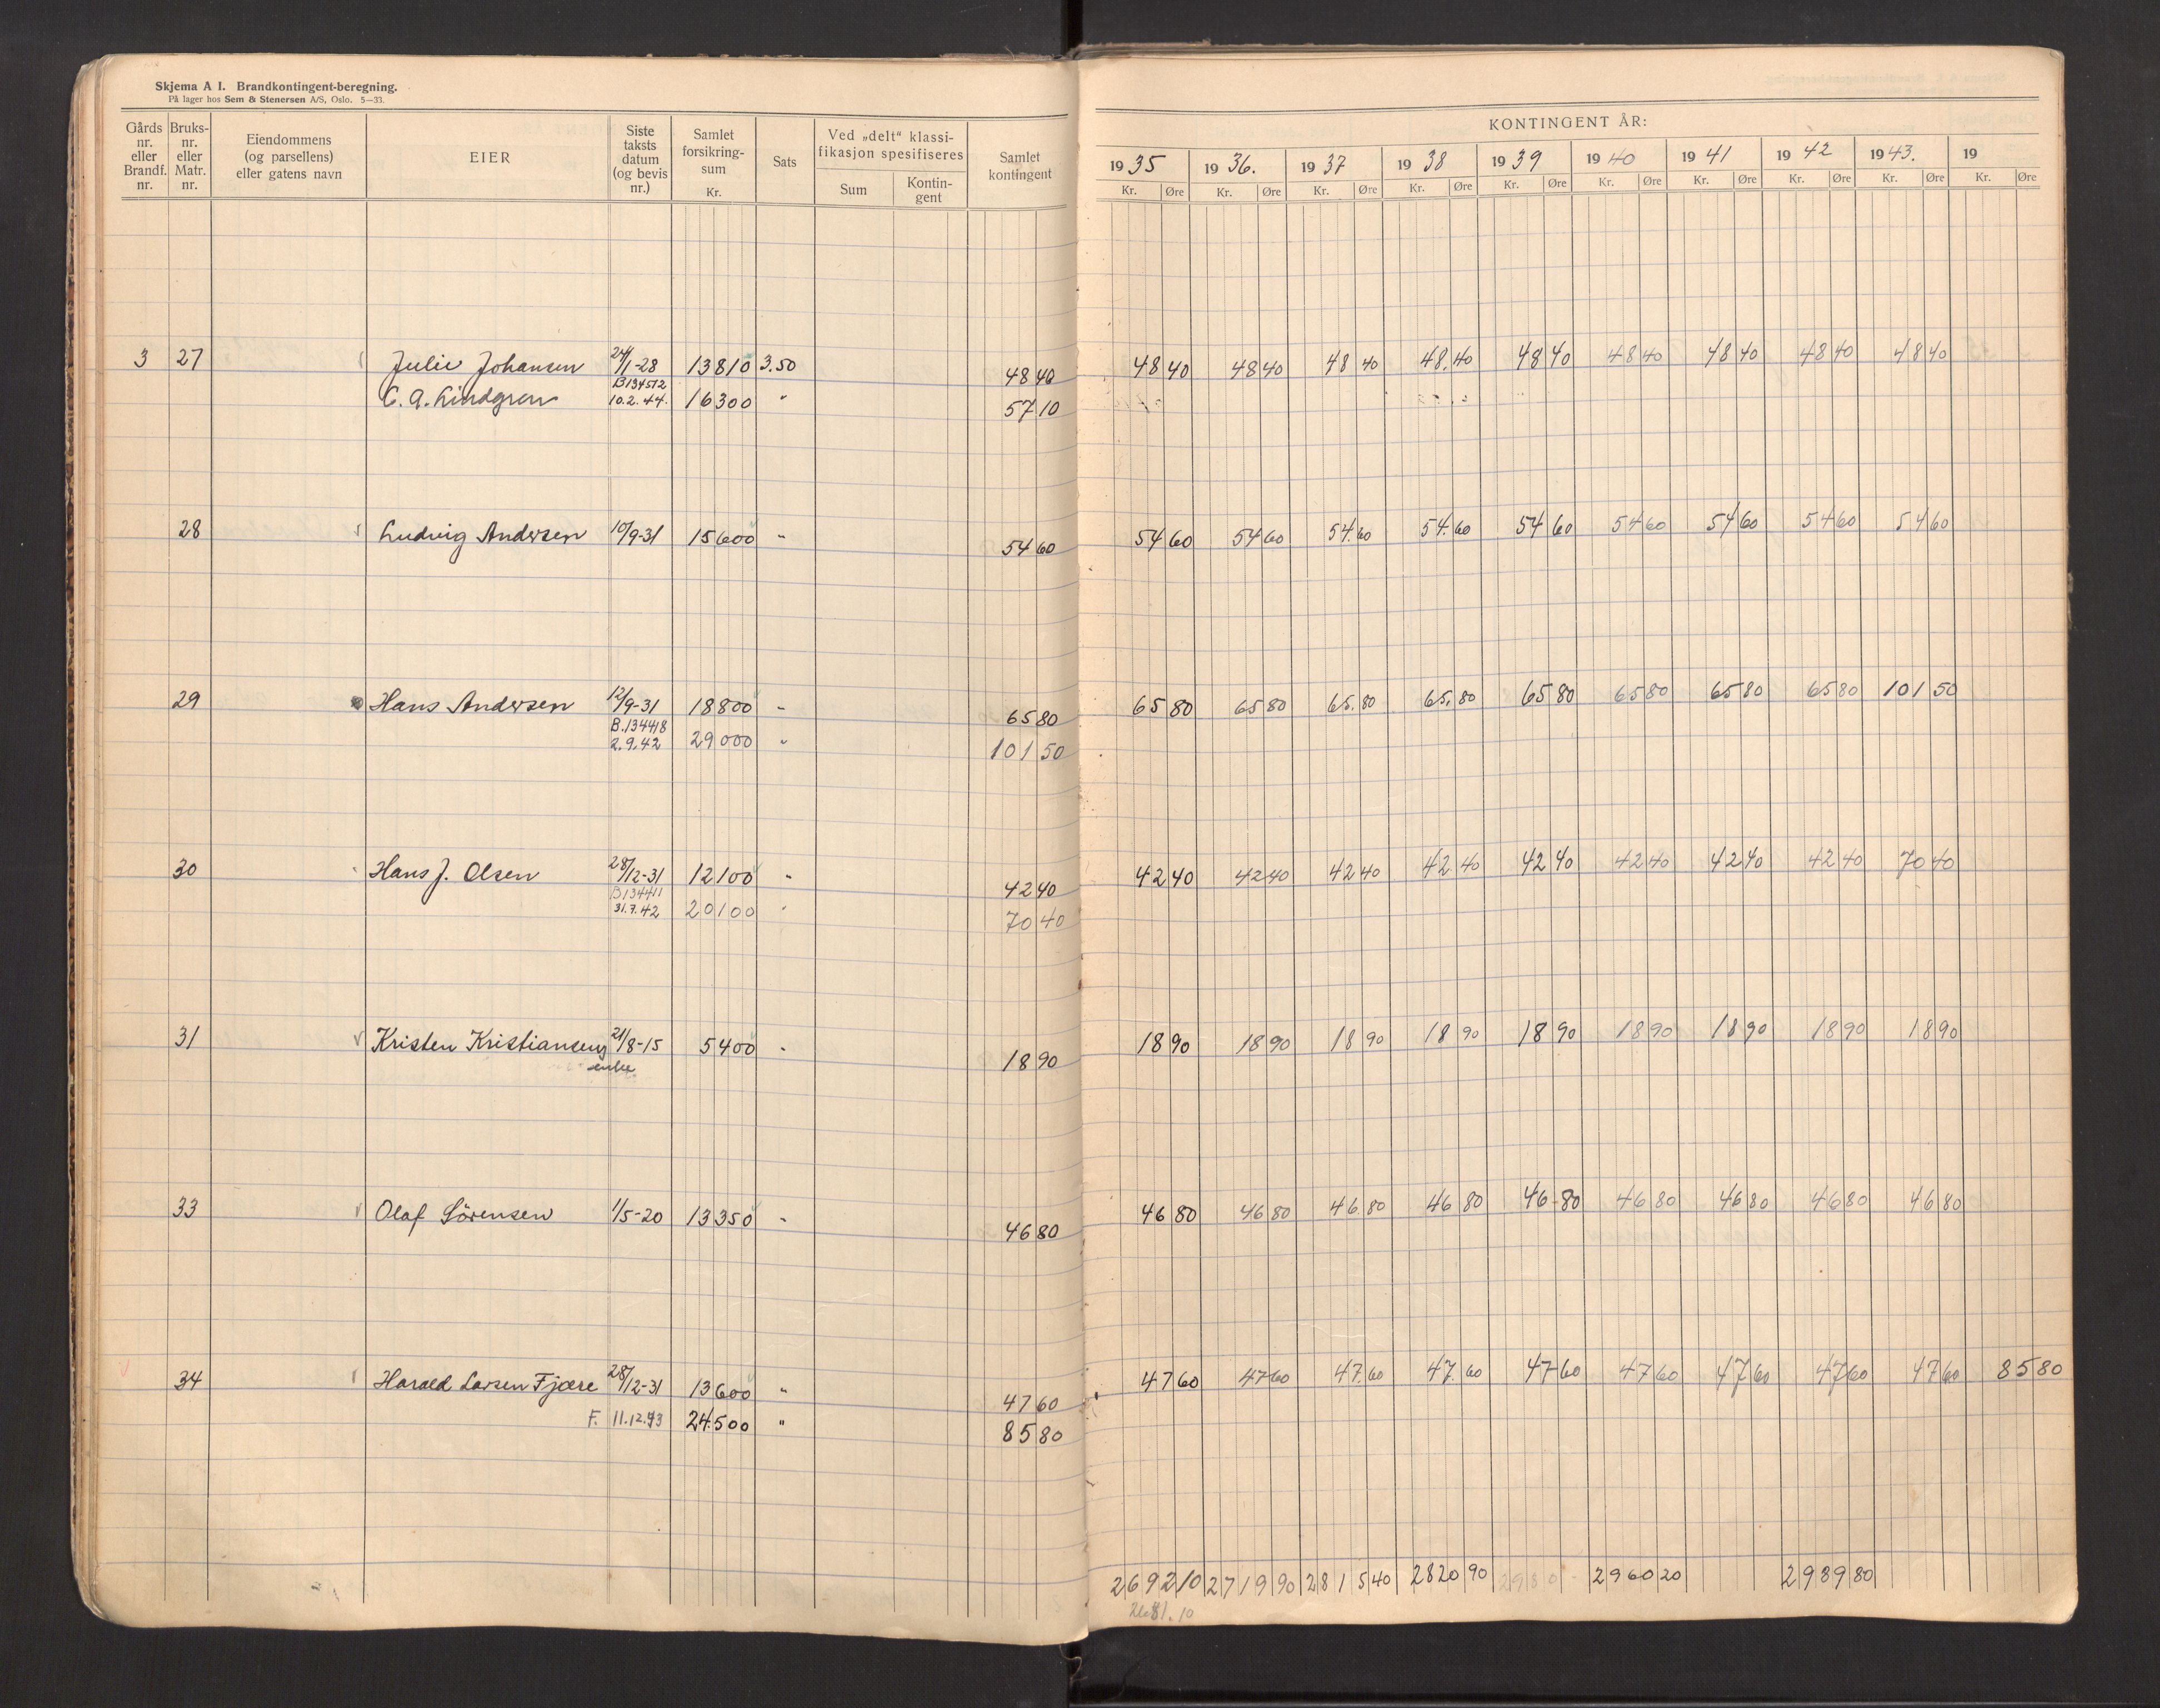 Skjema A I. Brandkontingent-beregning.
På lager hos Sem & Stenersen A/S, Oslo. 5—33.
Gårds nr. eller Brandf. nr. | Bruks- nr. eller Matr. nr. | Eiendommens (og parsellens) eller gatens navn | EIER | Siste taksts datum (og bevis nr.) | Samlet forsikring- sum Kr. | Sats | Ved „delt“ klassi- fikasjon spesifiseres Sum | Kontin- gent | Samlet kontingent
KONTINGENT ÅR:
1935 | 1936. | 1937 | 1938 | 1939 | 1940 | 1941 | 1942 | 1943. | 19
Kr. Øre | Kr. Øre | Kr. Øre | Kr. Øre | Kr. Øre | Kr. Øre | Kr. Øre | Kr. Øre | Kr. Øre | Kr. Øre
3 27 Julie Johansen 24/1-28 13810 3.50 48 40 | 48 40 | 48 40 | 48 40 | 48.40 | 48 40 | 48 40 | 48 40 | 48 40 | 48 40
B134512
C. A. Lindgren 10.2.44. 16300 " 57 10
28 Ludvig Andersen 10/9-31 15600 " 54 60 | 54 60 | 54 60 | 54.60 | 54.60 | 54 60 | 54 60 | 54 60 | 54 60 | 54 60
29 Hans Andersen 12/9-31 18800 " 65 80 | 65 80 | 65 80 | 65.80 | 65.80 | 65 80 | 65 80 | 65 80 | 65 80 | 101 50
B.134418
2.9.42 29000 " 101 50
30 Hans J. Olsen 28/12-31 12100 " 42 40 | 42 40 | 42 40 | 42 40 | 42 40 | 42 40 | 42 40 | 42 40 | 42 40 | 70 40
B134411
31.7.42 20100 " 70 40
31 Kristen Kristiansens 21/8-15 5400 " 18 90 | 18 90 | 18 90 | 18 90 | 18 90 | 18 90 | 18 90 | 18 90 | 18 90 | 18 90
enke
33 Olaf Sörensen 1/5-20 13350 " 46 80 | 46 80 | 46 80 | 46.80 | 46 80 | 46-80 | 46 80 | 46 80 | 46 80 | 46 80
34 Harald Larsen Fjære 28/12-31 13600 " 47 60 | 47 60 | 47 60 | 47.60 | 47.60 | 47 60 | 47 60 | 47 60 | 47 60 | 47 60 | 85 80
F. 11.12.43 24.500 " 85 80
2692 10 | 2719 90 | 2815 40 | 2820 90 | 2960 20 | 2989 80